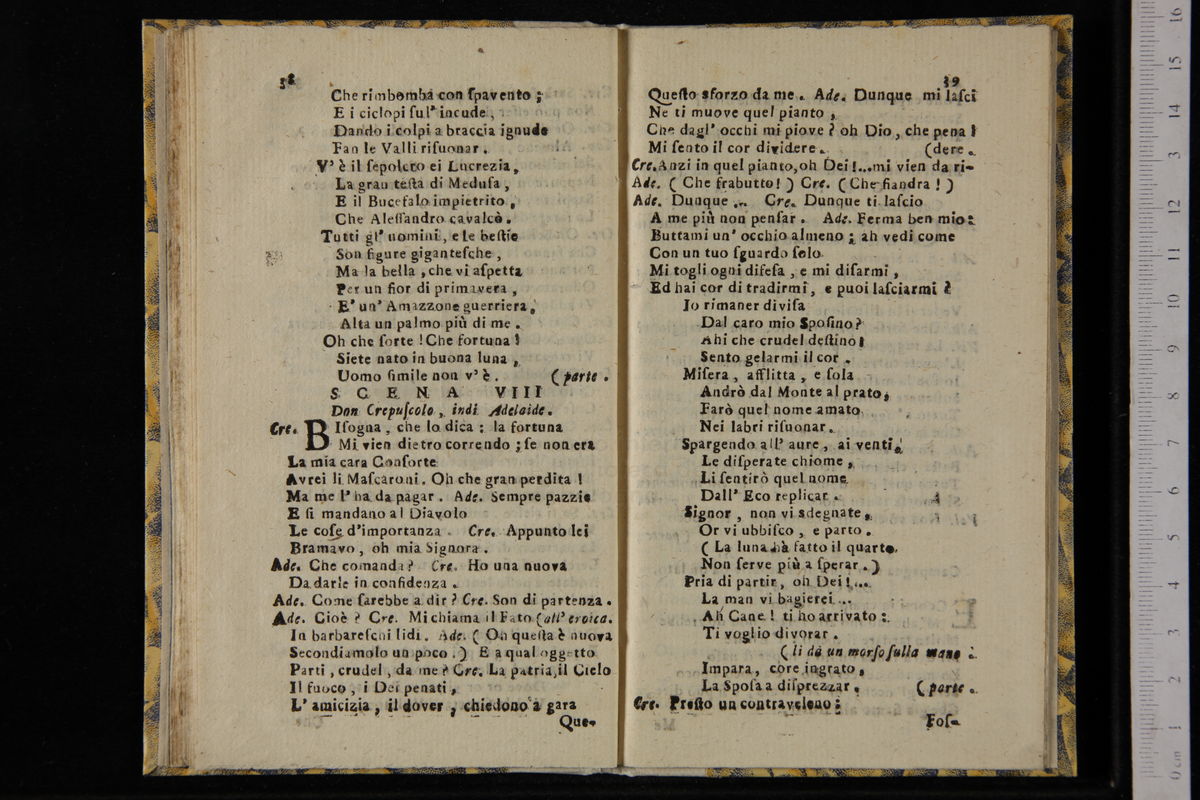 38
Che rimbomba con ſpavento ;
E i ciclopi ſul' incude ,
Dando i colpi a braccia ignude
Fan le Valli riſuonar .
V' è il ſepolcro ei Lucrezia ,
La gran teſta di Meduſa ,
E il Bucefalo impietrito ,
Che Aleſſandro cavalcò .
Tutti gl' uomini , e le beſtie
Son figure giganteſche ,
Ma la bella , che vi aſpetta
Per un fior di primavera ,
E' un' Amazzone guerriera ,
Alta un palmo più di me .
Oh che ſorte ! Che fortuna !
Siete nato in buona luna ,
Uomo ſimile non v' è . ( parte .
S C E N A VIII
Don Crepuſcolo , indi Adelaide .
Cre. BIſogna , che lo dica : la fortuna
Mi vien dietro correndo ; ſe non era
La mia cara Conſorte
Avrei li Maſcaroni . Oh che gran perdita !
Ma me l' ha da pagar . Ade. Sempre pazzie
E ſi mandano al Diavolo
Le coſe d'importanza . Cre. Appunto lei
Bramavo , oh mia Signora .
Ade. Che comanda ? Cre. Ho una nuova
Da darle in confidenza .
Ade. Come ſarebbe a dir ? Cre. Son di partenza .
Ade. Cioè ? Cre. Mi chiama il Fato (all' eroica.
In barbareſchi lidi . Ade. ( Oh queſta è nuova
Secondiamolo un poco . ) E a qual oggetto
Parti , crudel , da me ? Cre. La patria , il Cielo
Il fuoco , i Dei penati ,
L' amicizia , il dover , chiedono a gara
Que-
39
Queſto sforzo da me . Ade. Dunque mi laſci
Ne ti muove quel pianto ,
Che dagl' occhi mi piove ? oh Dio , che pena !
Mi ſento il cor dividere . (dere .
Cre. Anzi in quel pianto, oh Dei !... mi vien da ri-
Ade. ( Che frabutto ! ) Cre. ( Che fiandra ! )
Ade. Dunque ... Cre. Dunque ti laſcio
A me più non penſar . Ade. Ferma ben mio :
Buttami un' occhio almeno ; ah vedi come
Con un tuo ſguardo ſolo
Mi togli ogni difeſa , e mi diſarmi ,
Ed hai cor di tradirmi , e puoi laſciarmi ?
Io rimaner diviſa
Dal caro mio Spoſino ?
Ahi che crudel deſtino !
Sento gelarmi il cor .
Miſera , afflitta , e ſola
Andrò dal Monte al prato ,
Farò quel nome amato
Nei labri riſuonar .
Spargendo all' aure , ai venti ,
Le diſperate chiome ,
Li ſentirò quel nome
Dall' Eco replicar .
Signor , non vi sdegnate ,
Or vi ubbiſco , e parto .
( La luna hà fatto il quarto ,
Non ſerve più a ſperar . )
Pria di partir , oh Dei ! ...
La man vi bagierei ...
Ah Cane ! ti ho arrivato :
Ti voglio divorar .
( li dà un morſo ſulla mano .
Impara , core ingrato ,
La Spoſa a diſprezzar . ( parte .
Cre. Preſto un contraveleno ;
Foſ-